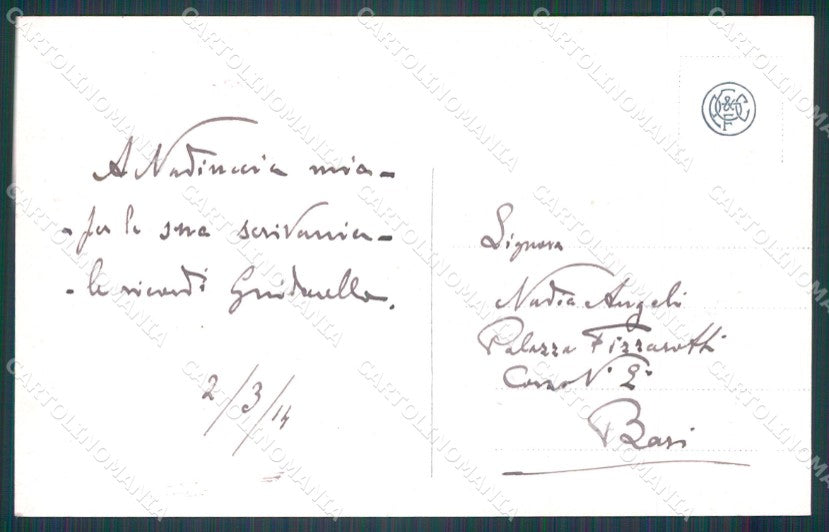 A Nadinuccia mia -
- per la sua scrivania -
- le ricordi Guidarello.
2/3/14
Signora
Nadia Angeli
Palazzo Fizzarotti
Corso V. E.
Bari
CARTOLINOMANIA